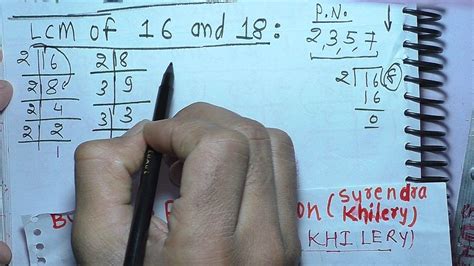 LCM of 16 and 18:
P.No.
2,3,5,7
2 16 2 18
2 8 3 9
2 4 3 3
2 2
1
2 16 8
16
0
By
on (Surendra
Khilery)
KHILERY)